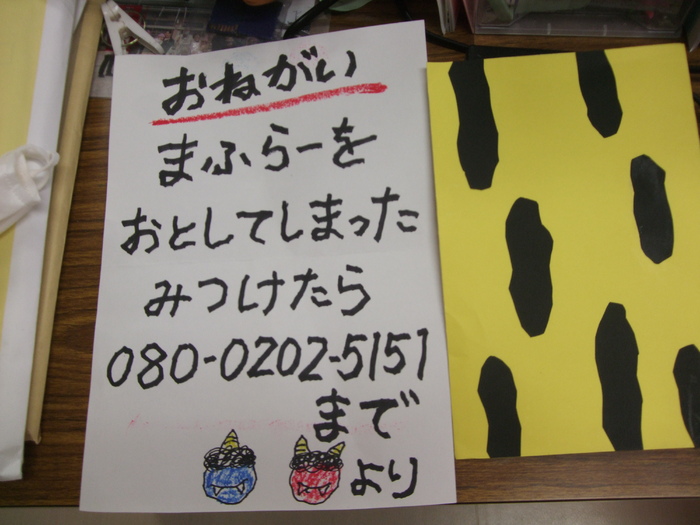 おねがい
まふらーを
おとしてしまった
みつけたら
080-0202-5151
まで
より